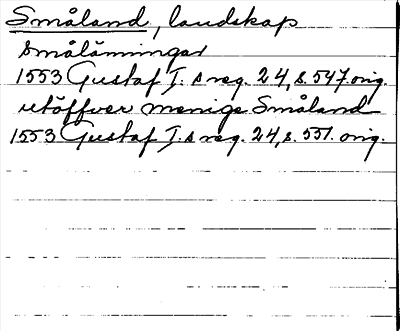 Småland, landskap
Smålänningar
1553 Gustaf I:s reg. 24, s. 547. orig.
utöffver menige Småland
1553 Gustaf I:s reg. 24, s. 551. orig.